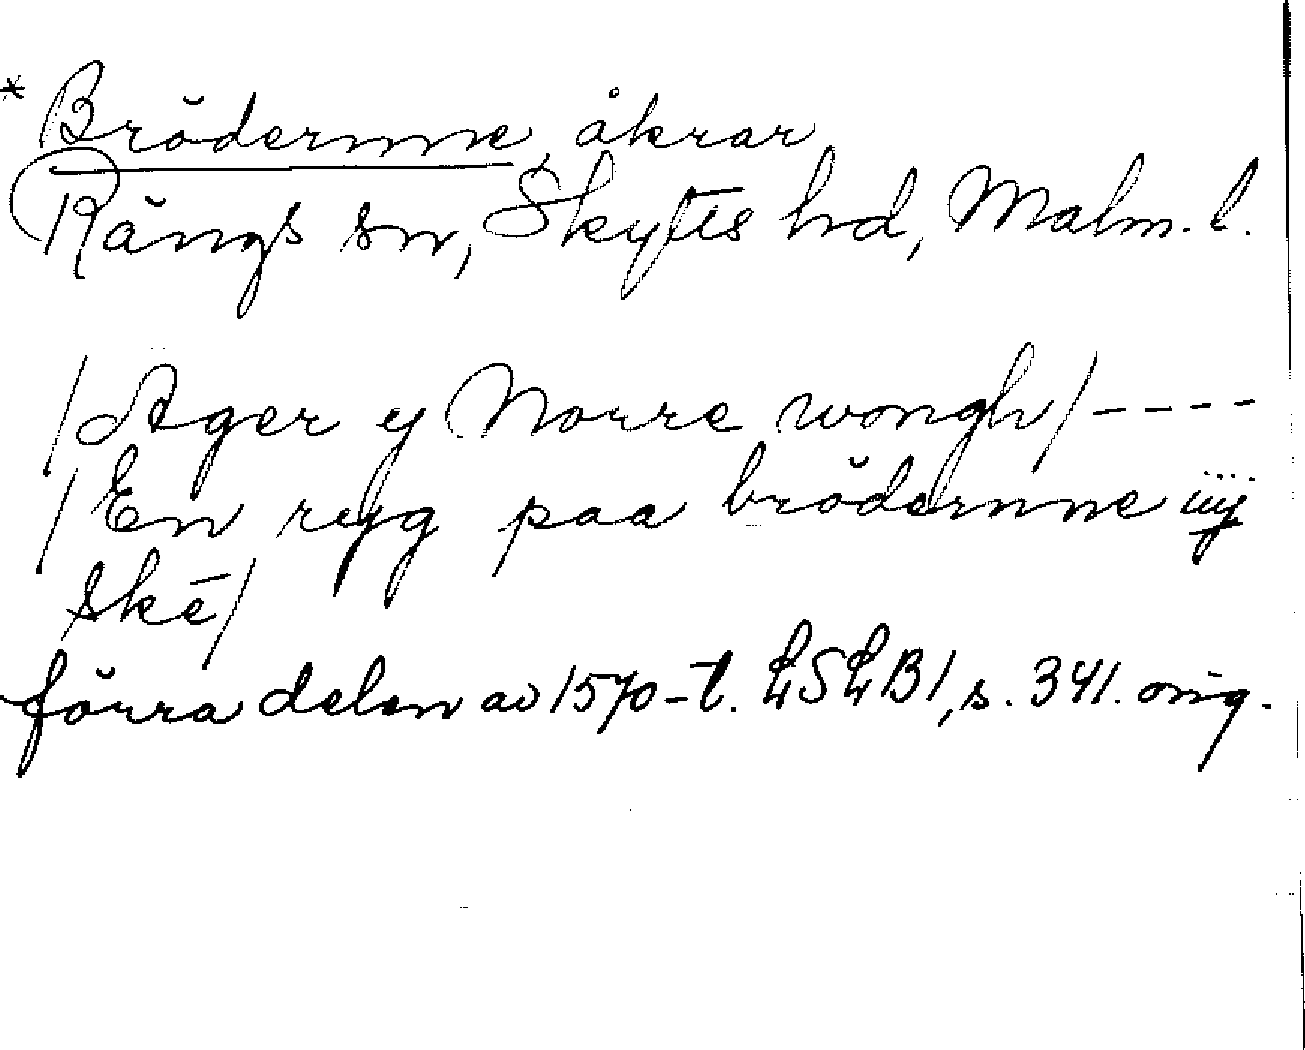 * Brödernne, åkrar
Rängs sn, Skytts hd, Malm. l.
/Ager y Norre wongh/ ----
/En ryg paa brödernne iiij
skē/
förra delen av 1570-t. LSLB1, s. 341. orig.